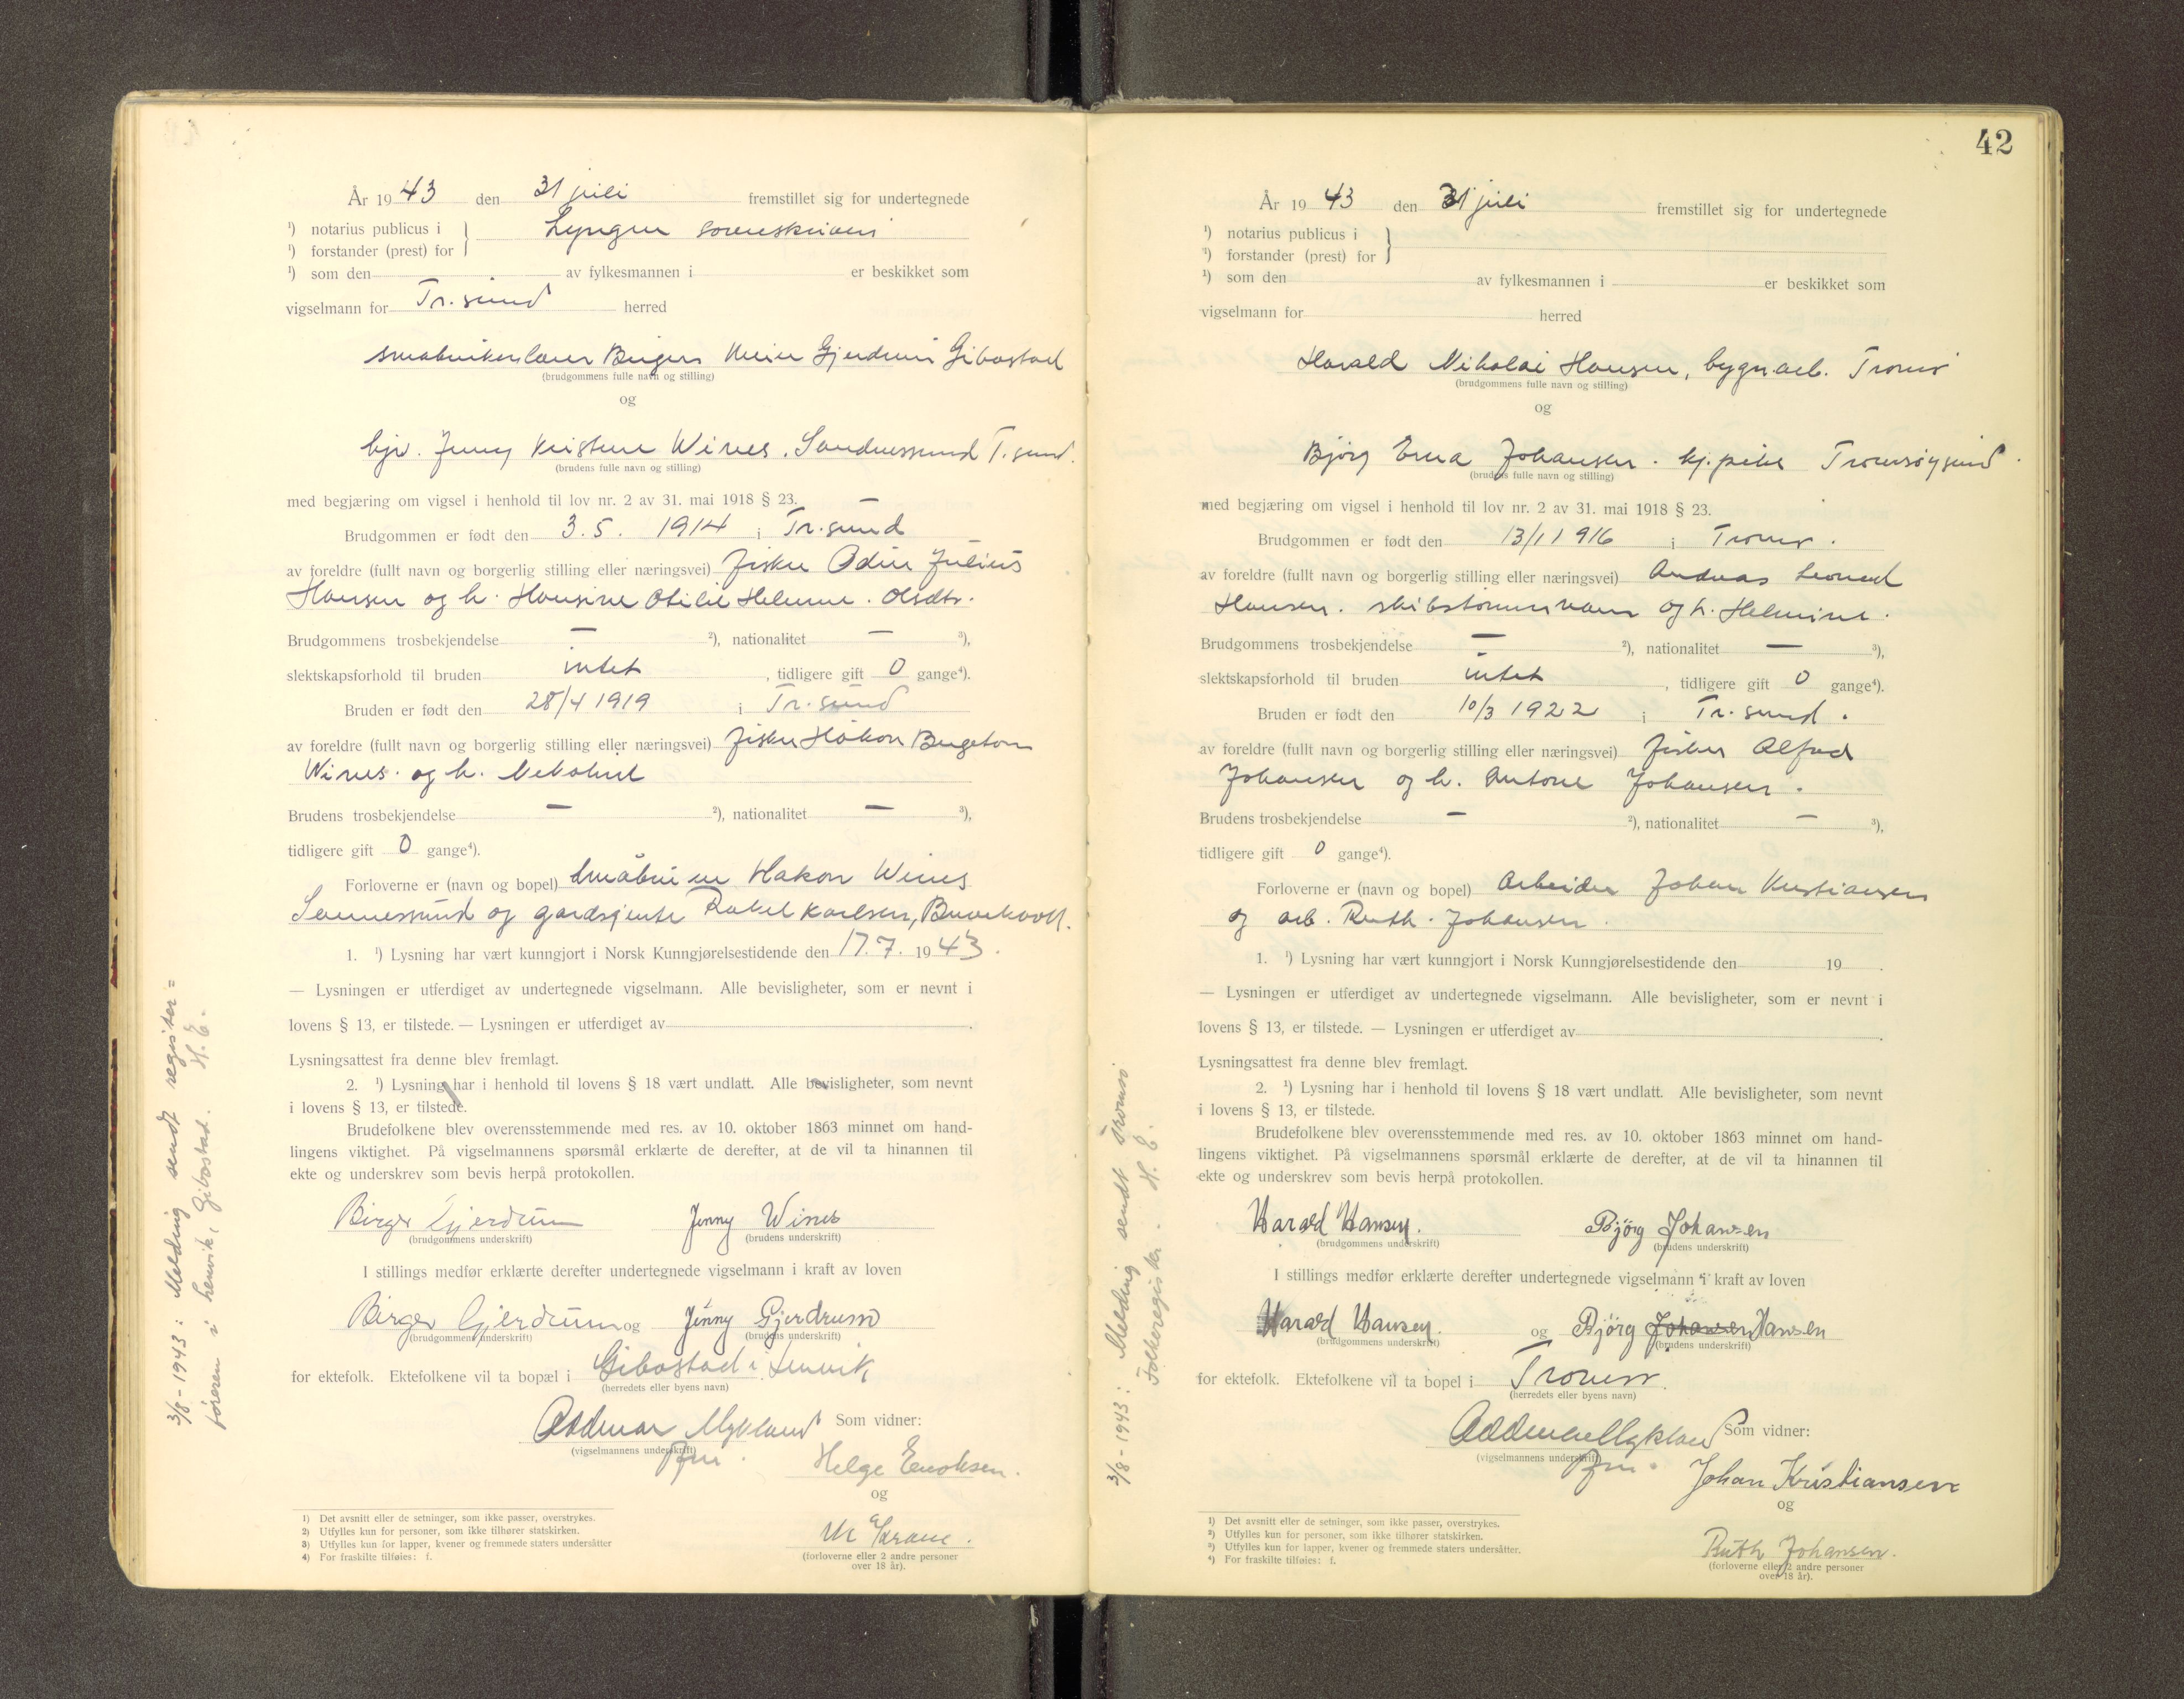 År 1943 den 31 juli fremstillet sig for undertegnede
¹) notarius publicus i } Lyngen sorenskriveri
¹) forstander (prest) for
¹) som den av fylkesmannen i er beskikket som
vigselmann for Tr.sund herred
Birger Gjerdrum Gibostad
(brudgommens fulle navn og stilling)
og
Jenny Kristine Wines. T.sund.
(brudens fulle navn og stilling)
med begjæring om vigsel i henhold til lov nr. 2 av 31. mai 1918 § 23. —
Brudgommen er født den 3.5. 1914 i Tr.sund
av foreldre (fullt navn og borgerlig stilling eller næringsvei) fisker Odin Julius
Hansen og h. Hansine Otilie Helene. Olsdtr.
Brudgommens trosbekjendelse — ²), nationalitet — ³),
slektskapsforhold til bruden intet, tidligere gift 0 gange⁴).
Bruden er født den 28/4 1919 i Tr.sund
av foreldre (fullt navn og borgerlig stilling eller næringsvei) fisker Håkon Bergeton
Wines. og h.
Brudens trosbekjendelse — ²), nationalitet — ³),
tidligere gift 0 gange⁴).
Forloverne er (navn og bopel) Håkon Wines
og gardsjente Rakel Karlsen,
1. ¹) Lysning har vært kunngjort i Norsk Kunngjørelsestidende den 17.7. 1943.
— Lysningen er utferdiget av undertegnede vigselmann. Alle bevisligheter, som er nevnt i
lovens § 13, er tilstede. — Lysningen er utferdiget av
Lysningsattest fra denne blev fremlagt.
2. ¹) Lysning har i henhold til lovens § 18 vært undlatt. Alle bevisligheter, som nevnt
i lovens § 13, er tilstede.
Brudefolkene blev overensstemmende med res. av 10. oktober 1863 minnet om hand-
lingens viktighet. På vigselmannens spørsmål erklærte de derefter, at de vil ta hinannen til
ekte og underskrev som bevis herpå protokollen.
Birger Gjerdrum Jenny Wines
(brudgommens underskrift) (brudens underskrift)
I stillings medfør erklærte derefter undertegnede vigselmann i kraft av loven
Birger Gjerdrum og Jenny Gjerdrum
(brudgommens underskrift) (brudens underskrift)
for ektefolk. Ektefolkene vil ta bopæl i Gibostad i Lenvik
(herredets eller byens navn)
Oddmar Mykland Som vidner:
(vigselmannens underskrift)
Helge Enoksen.
og
(forloverne eller 2 andre personer
over 18 år).
1) Det avsnitt eller de setninger, som ikke passer, overstrykes.
2) Utfylles kun for personer, som ikke tilhører statskirken.
3) Utfylles kun for lapper, kvener og fremmede staters undersåtter
4) For fraskilte tilføies: f.
3/8-1943: Melding sendt register=
føreren i Lenvik, Gibostad. H.E.
42
År 1943 den 31 juli fremstillet sig for undertegnede
¹) notarius publicus i }
¹) forstander (prest) for
¹) som den av fylkesmannen i er beskikket som
vigselmann for herred
Harald Nikolai Hansen, bygn.arb. Tromsø
(brudgommens fulle navn og stilling)
og
Bjørg Erna Johansen. hj.pike Tromsøysund.
(brudens fulle navn og stilling)
med begjæring om vigsel i henhold til lov nr. 2 av 31. mai 1918 § 23.
Brudgommen er født den 13/1 1916 i Tromsø.
av foreldre (fullt navn og borgerlig stilling eller næringsvei) Andreas Leonard
Hansen. skibstømmermann og h. Helmine.
Brudgommens trosbekjendelse — ²), nationalitet — ³),
slektskapsforhold til bruden intet, tidligere gift 0 gange⁴).
Bruden er født den 10/3 1922 i Tr.sund.
av foreldre (fullt navn og borgerlig stilling eller næringsvei) fisker Alfred
Johansen og h. Antone Johansen.
Brudens trosbekjendelse — ²), nationalitet — ³),
tidligere gift 0 gange⁴).
Forloverne er (navn og bopel) Arbeider Johan Kristiansen
og arb. Ruth. Johansen.
1. ¹) Lysning har vært kunngjort i Norsk Kunngjørelsestidende den 19 .
— Lysningen er utferdiget av undertegnede vigselmann. Alle bevisligheter, som er nevnt i
lovens § 13, er tilstede. — Lysningen er utferdiget av
Lysningsattest fra denne blev fremlagt.
2. ¹) Lysning har i henhold til lovens § 18 vært undlatt. Alle bevisligheter, som nevnt
i lovens § 13, er tilstede.
Brudefolkene blev overensstemmende med res. av 10. oktober 1863 minnet om hand-
lingens viktighet. På vigselmannens spørsmål erklærte de derefter, at de vil ta hinannen til
ekte og underskrev som bevis herpå protokollen.
Harald Hansen. Bjørg Johansen
(brudgommens underskrift) (brudens underskrift)
I stillings medfør erklærte derefter undertegnede vigselmann i kraft av loven
Harald Hansen. og Bjørg Johansen Hansen
(brudgommens underskrift) (brudens underskrift)
for ektefolk. Ektefolkene vil ta bopel i Tromsø.
(herredets eller byens navn)
Oddmar Mykland Som vidner:
(vigselmannens underskrift)
Johan Kristiansen
og
Ruth Johansen.
(forloverne eller 2 andre personer
over 18 år).
1) Det avsnitt eller de setninger, som ikke passer, overstrykes.
2) Utfylles kun for personer, som ikke tilhører statskirken.
3) Utfylles kun for lapper, kvener og fremmede staters undersåtter.
4) For fraskilte tilføies: f.
3/8-1943: Melding sendt Tromsø
Folkeregister. H.E.